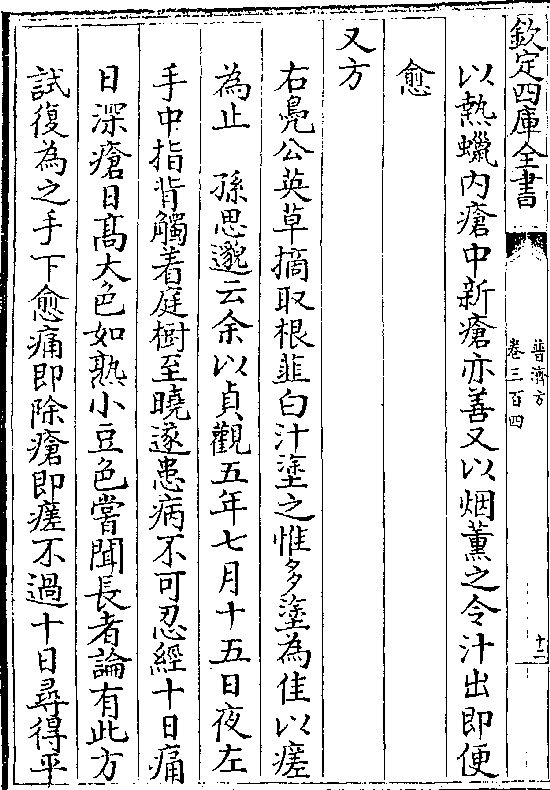 欽定四庫全書
普濟方
卷三百四
十二
以熱蠟内瘡中新瘡亦善又以烟薰之令汁出即便
愈
又方
右鳧公英草摘取根莖白汁塗之惟多塗為佳以瘥
為止　孫思邈云余以貞觀五年七月十五日夜左
手中指背觸着庭樹至曉遂患病不可忍經十日痛
日深瘡日髙大色如熟小豆色嘗聞長者論有此方
試復為之手下愈痛即除瘡即瘥不過十日尋得平